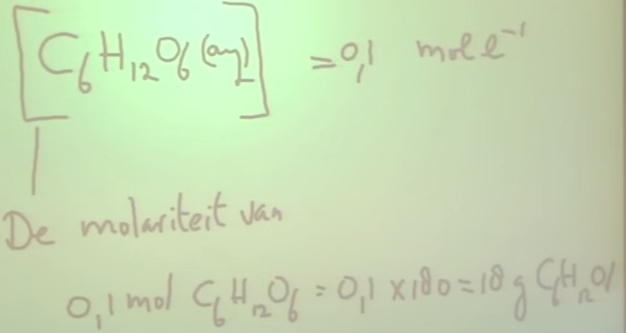 [C6H12O6(aq)] = 0,1 mol l⁻¹
De molariteit van
0,1 mol C6H12O6 = 0,1 x 180 = 18 g C6H12O6